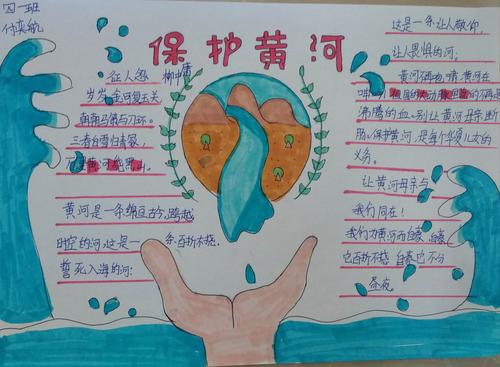 四一班
付奕航
保护黄河
征人怨
柳中庸
岁岁金河复玉关,
朝朝马策与刀环。
三春白雪归青冢,
万里黄河绕黑山。
黄河是一条绵亘古今,跨越
时空的河,这是一条百折不挠,
誓死入海的河:
这是一条让人敬仰,
让人畏惧的河;
黄河
沸腾的血、别让黄河母亲断
肠、保护黄河,是每个华夏儿女的
义务。
让黄河母亲与
我们同在!
我们为黄河而自豪,自豪
它百折不挠,自豪它不分
昼夜。